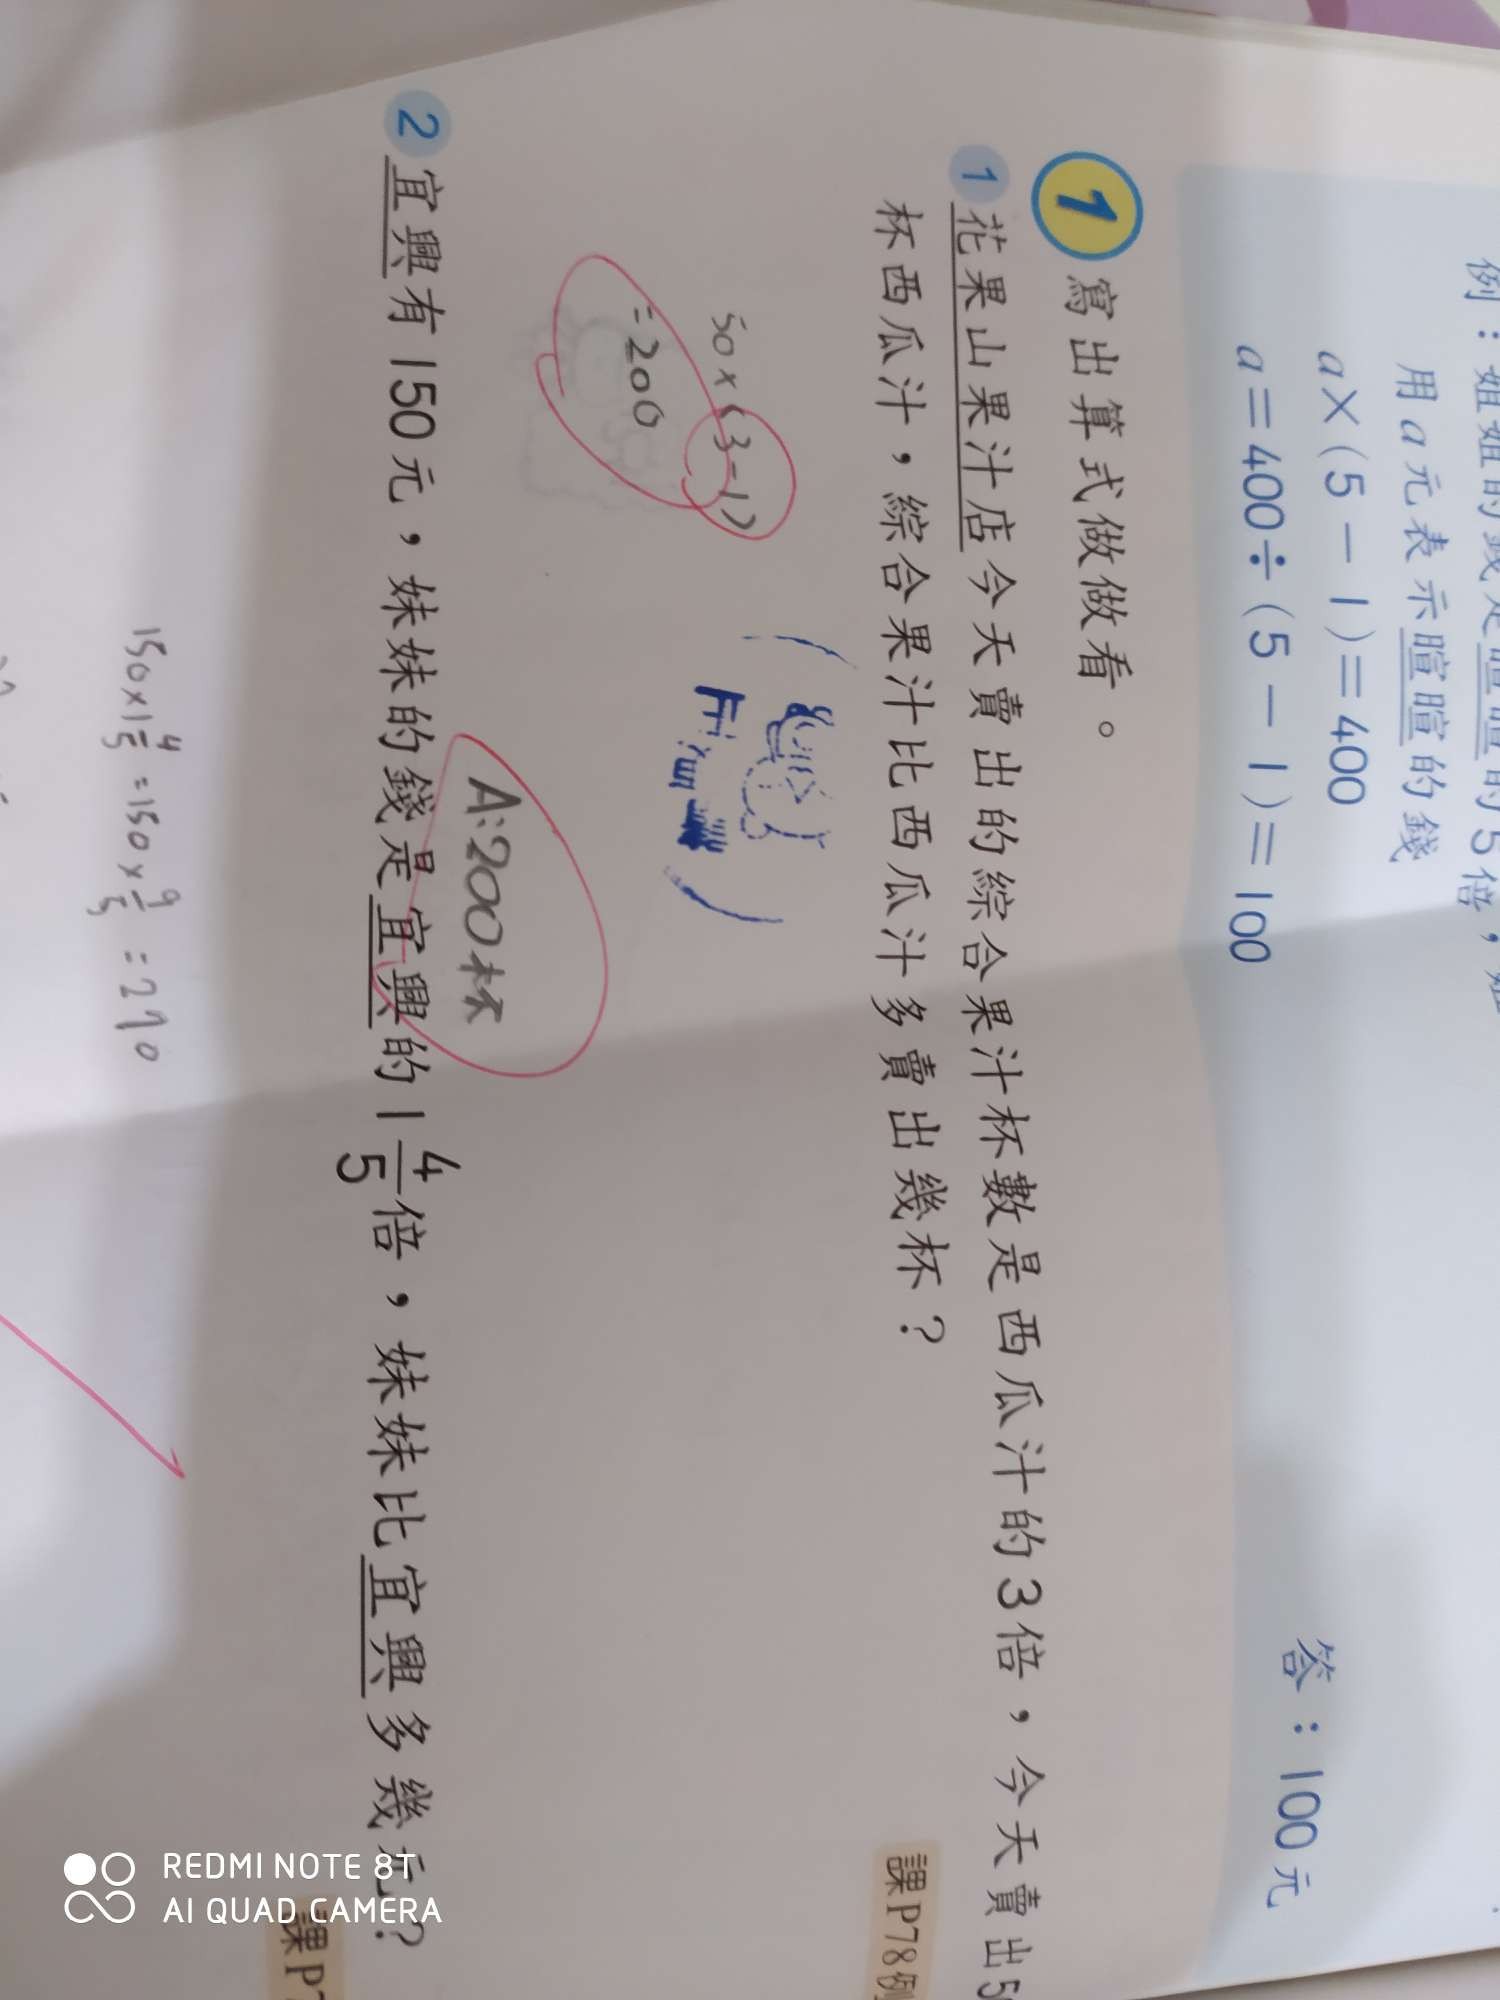 例：姐姐的錢是暄暄的5倍，
用a元表示暄暄的錢
a×(5－1)＝400
a＝400÷(5－1)＝100
答：100元
1 寫出算式做做看。
1 花果山果汁店今天賣出的綜合果汁杯數是西瓜汁的3倍，今天賣出
杯西瓜汁，綜合果汁比西瓜汁多賣出幾杯？
課P78例
50×(3-1)
=200
A:200杯
2 宜興有150元，妹妹的錢是宜興的1 4/5倍，妹妹比宜興多幾元？
課P7
150×1 4/5=150×9/5=270
REDMI NOTE 8T
AI QUAD CAMERA